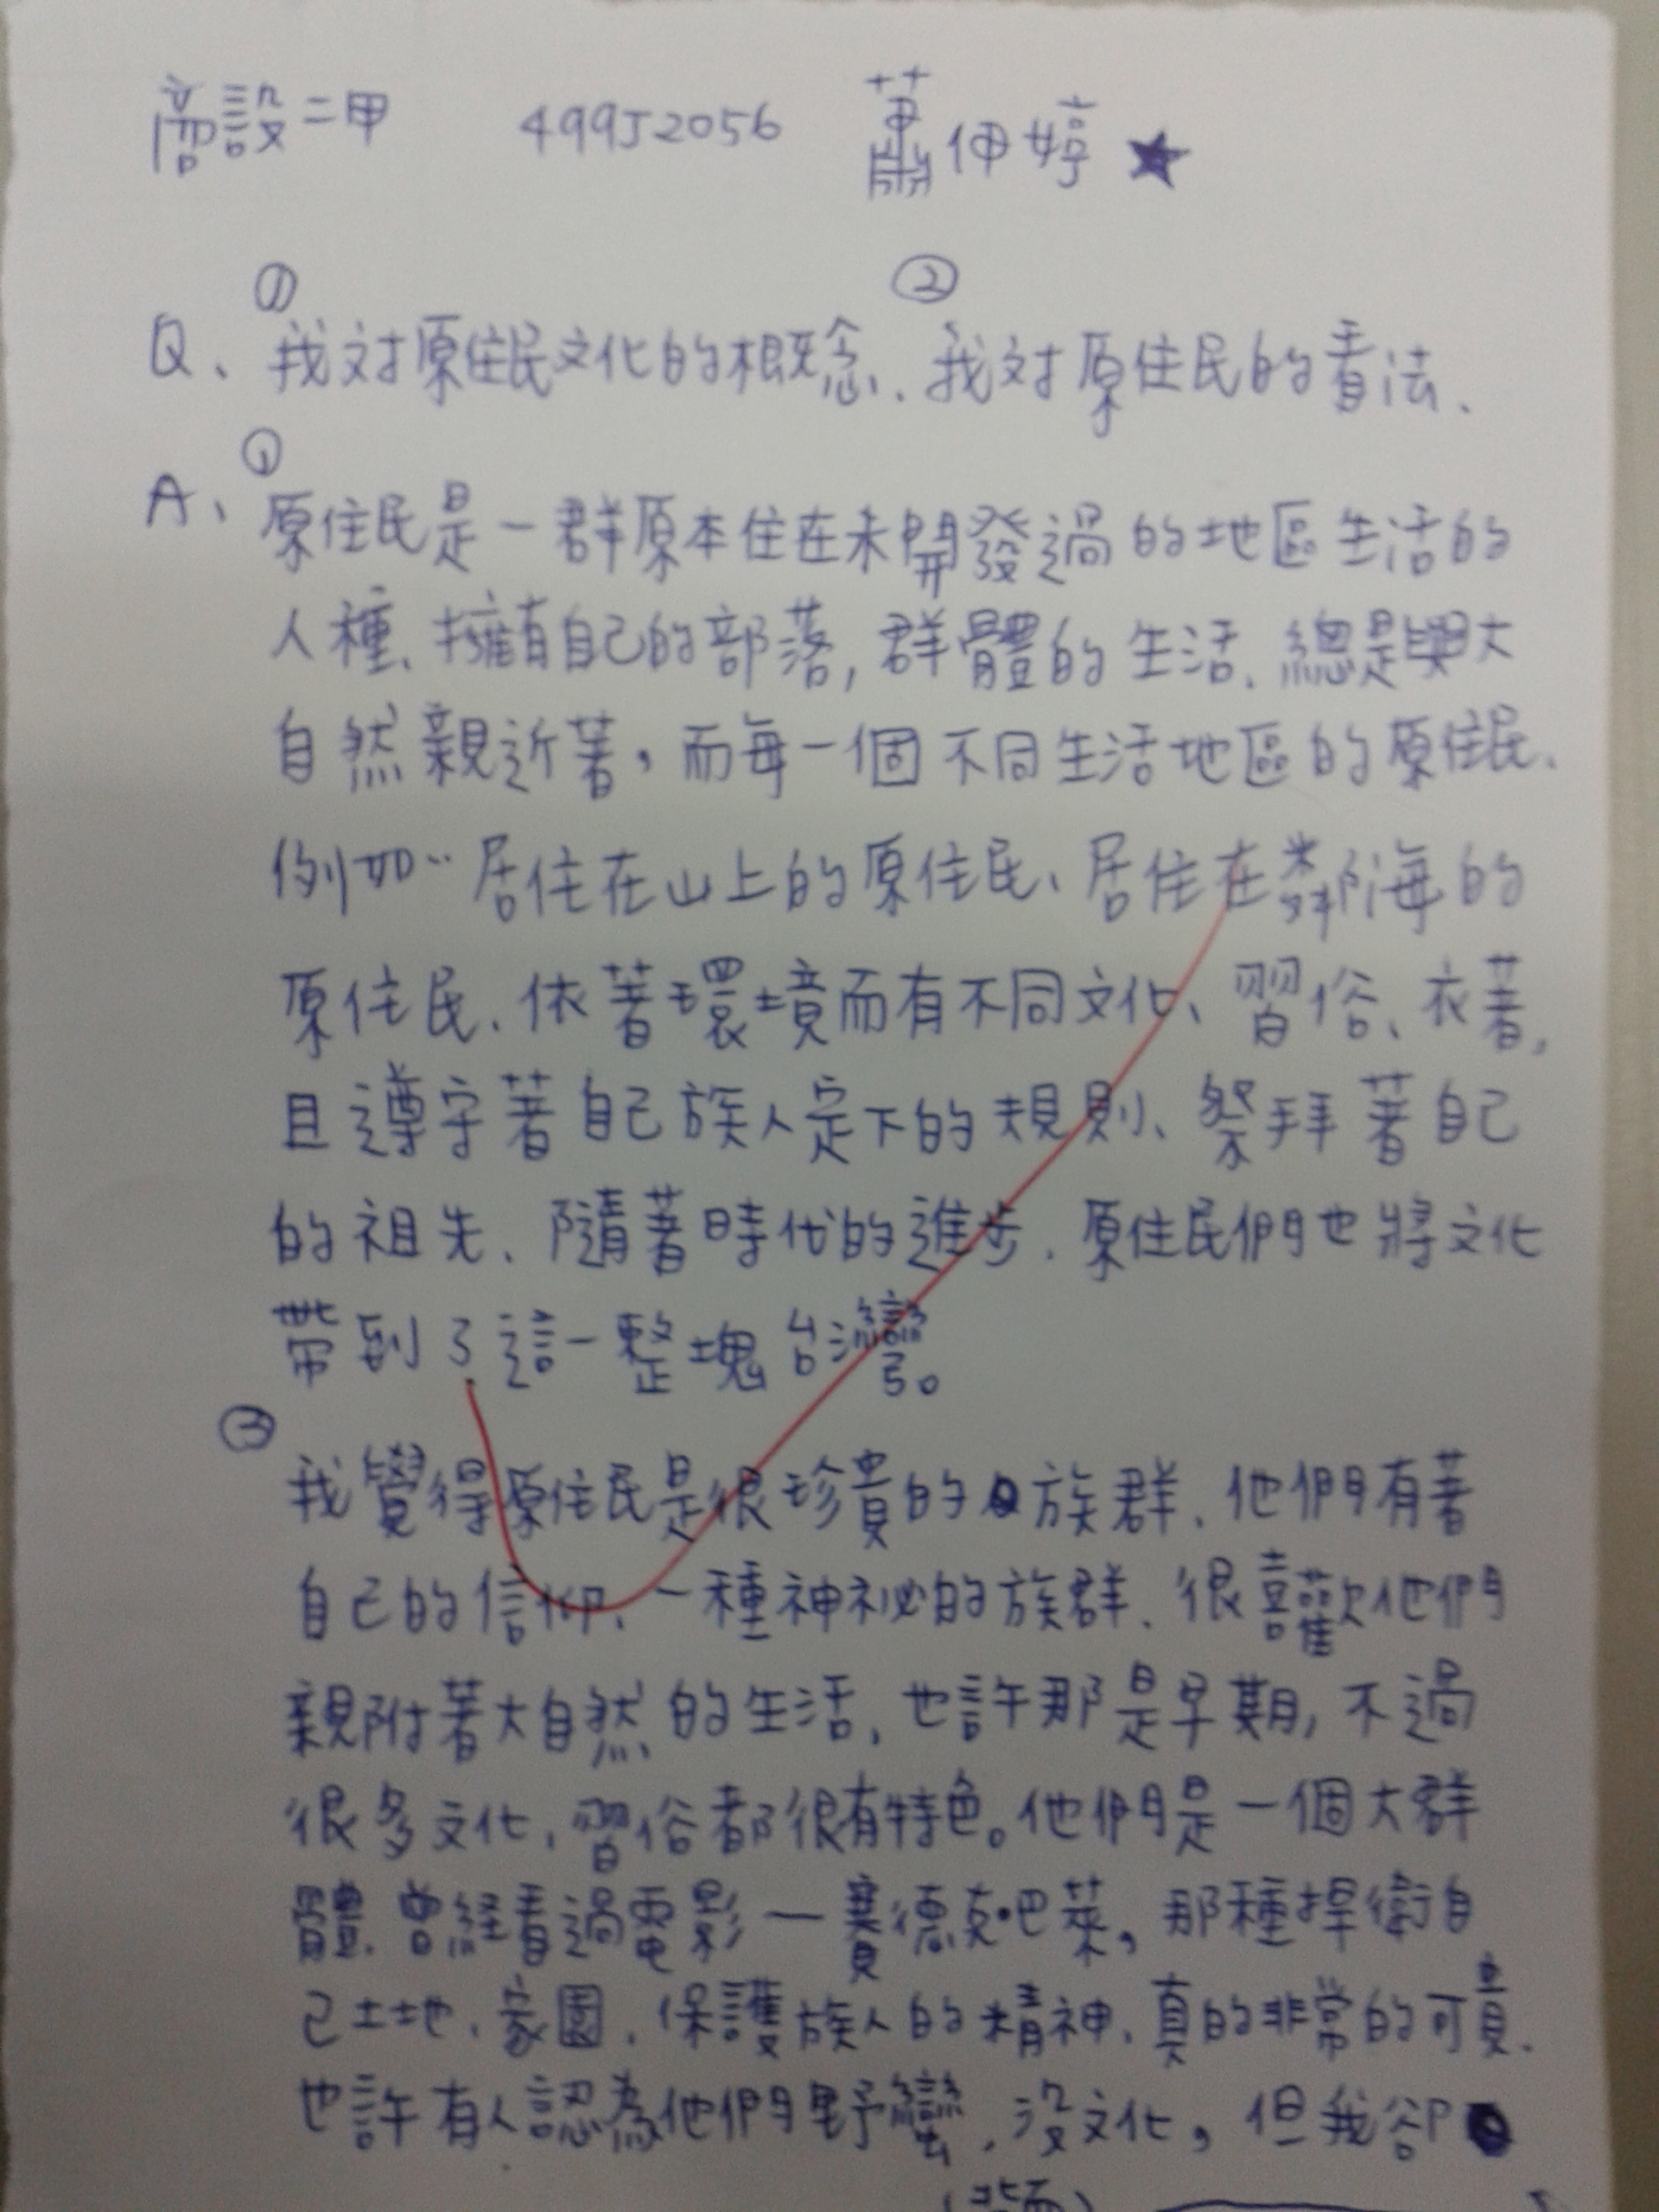 商設二甲 499J2056 蕭伊婷 ★
① ②
Q、我対原住民文化的概念、我対原住民的看法、
①
A、原住民是一群原本住在未開發過的地區生活的
人種、擁有自己的部落,群體的生活、總是與大
自然親近著,而每一個不同生活地區的原住民、
例如‥居住在山上的原住民、居住在鄰海的
原住民、依著環境而有不同文化、習俗、衣著,
且遵守著自己族人定下的規則、祭拜著自己
的祖先、隨著時代的進步、原住民們也將文化
帶到了這一整塊台灣。
②
我覺得原住民是很珍貴的族群、他們有著
自己的信仰、一種神祕的族群、很喜歡他們
親附著大自然的生活,也許那是早期,不過
很多文化、習俗都很有特色。他們是一個大群
體、曾經看過電影—賽德克·吧萊,那種捍衛自
己土地、家園、保護族人的精神、真的非常的可貴、
也許有人認為他們野蠻、沒文化,但我卻
(背面)